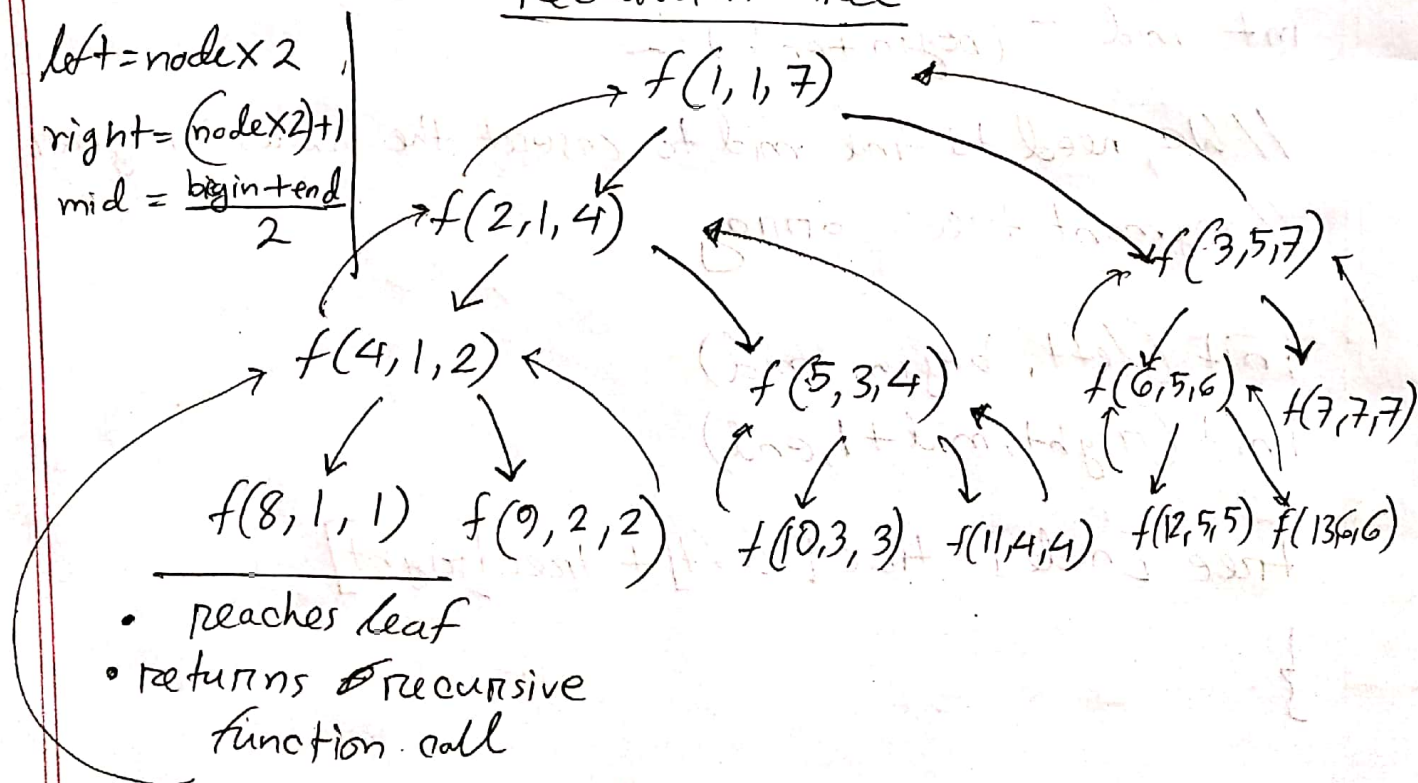 left = node X 2
right = (node X 2) + 1
mid = begin + end
2
f(1, 1, 7)
f(2, 1, 4)
f(3, 5, 7)
f(4, 1, 2)
f(5, 3, 4)
f(6, 5, 6)
f(7, 7, 7)
f(8, 1, 1)
f(9, 2, 2)
f(10, 3, 3)
f(11, 4, 4)
f(12, 5, 5)
f(13, 6, 6)
• reaches leaf
• returns recursive
function call